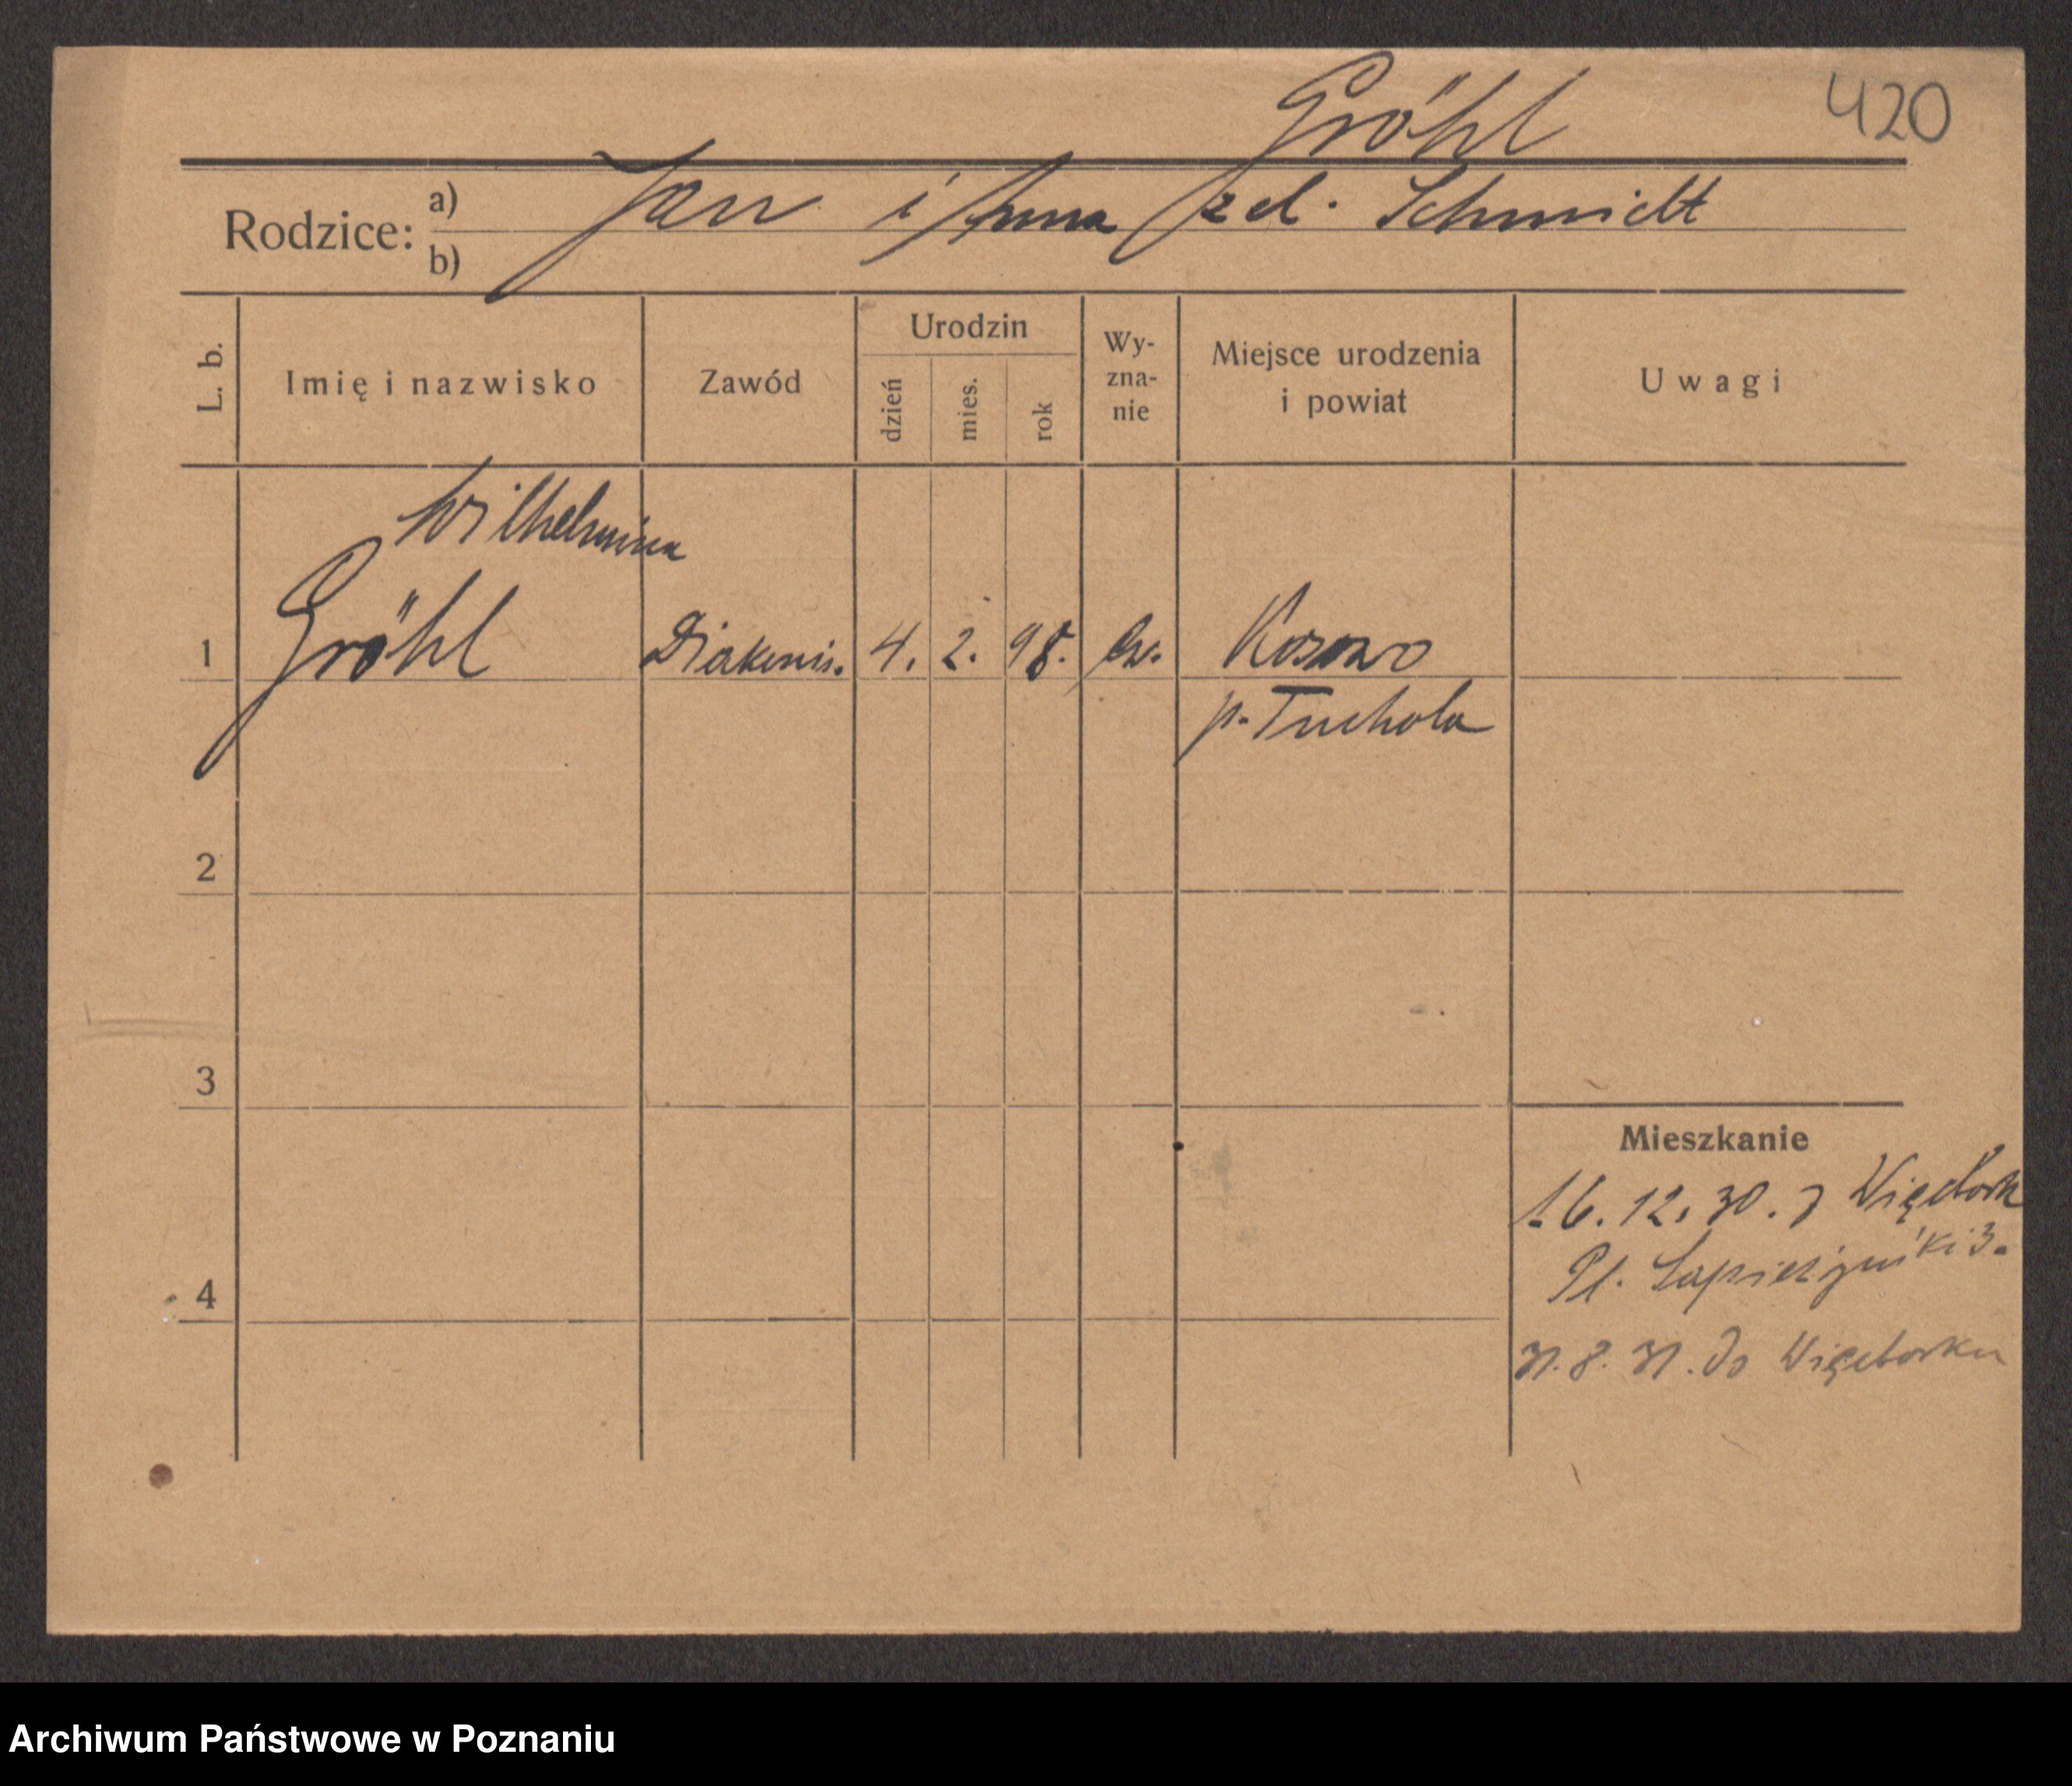 Gröhl 420
Rodzice: a) Jan i Anna zd. Schmidt
b)
L. b. Imię i nazwisko Zawód Urodzin dzień mies. rok Wy-zna-nie Miejsce urodzenia i powiat Uwagi
Wilhelmina
1 Gröhl Diakonis. 4. 2. 98. Ew. Kosowo
p. Tuchola
2
3
Mieszkanie
16. 12. 30. z Więcbork
Pl. Sapieżyński 3.
4
31. 8. 31. do Więcborku
Archiwum Państwowe w Poznaniu